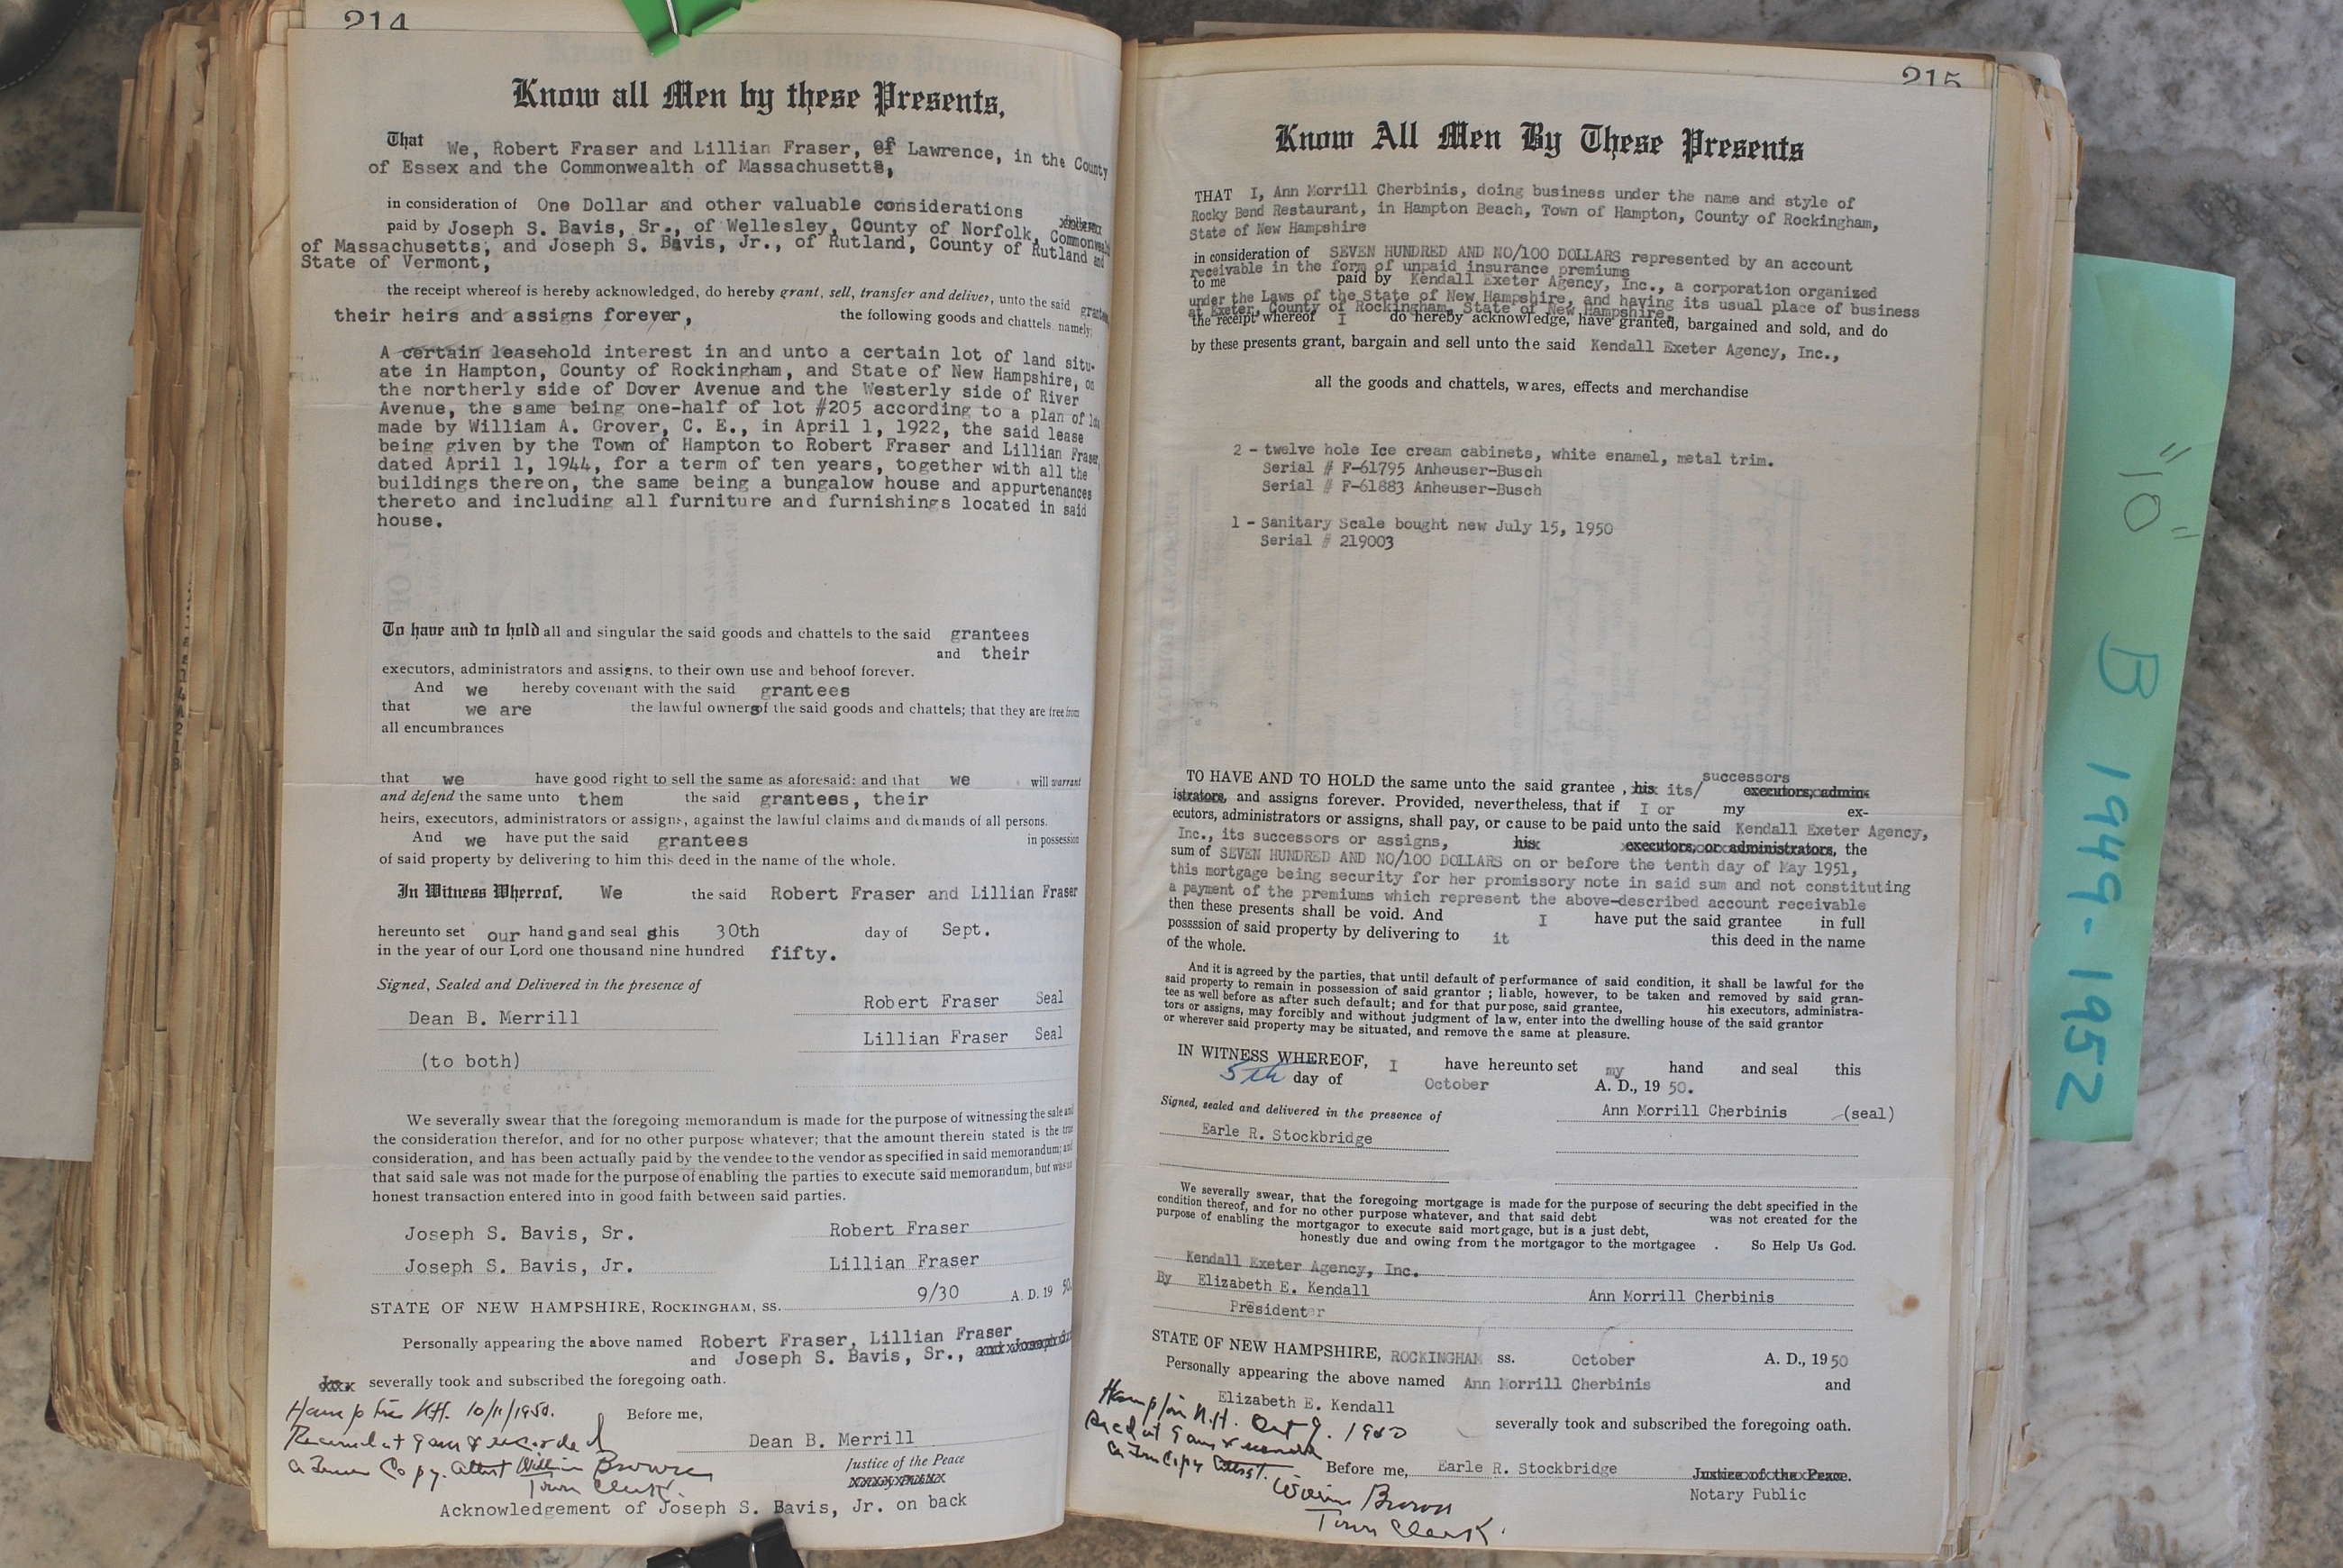 214
Know all Men by these Presents,
That We, Robert Fraser and Lillian Fraser, of Lawrence, in the County
of Essex and the Commonwealth of Massachusetts,
in consideration of One Dollar and other valuable considerations
paid by Joseph S. Bavis, Sr., of Wellesley, County of Norfolk, Commonwealth
of Massachusetts, and Joseph S. Bavis, Jr., of Rutland, County of Rutland and
State of Vermont,
the receipt whereof is hereby acknowledged, do hereby grant, sell, transfer and deliver, unto the said grantees
their heirs and assigns forever, the following goods and chattels, namely;
A certain leasehold interest in and unto a certain lot of land situ-
ate in Hampton, County of Rockingham, and State of New Hampshire, on
the northerly side of Dover Avenue and the Westerly side of River
Avenue, the same being one-half of lot #205 according to a plan of lots
made by William A. Grover, C. E., in April 1, 1922, the said lease
being given by the Town of Hampton to Robert Fraser and Lillian Fraser,
dated April 1, 1944, for a term of ten years, together with all the
buildings thereon, the same being a bungalow house and appurtenances
thereto and including all furniture and furnishings located in said
house.
To have and to hold all and singular the said goods and chattels to the said grantees
and their
executors, administrators and assigns, to their own use and behoof forever.
And we hereby covenant with the said grantees
that we are the lawful owners of the said goods and chattels; that they are free from
all encumbrances
that we have good right to sell the same as aforesaid: and that we will warrant
and defend the same unto them the said grantees, their
heirs, executors, administrators or assigns, against the lawful claims and demands of all persons.
And we have put the said grantees in possession
of said property by delivering to him this deed in the name of the whole.
In Witness Whereof, We the said Robert Fraser and Lillian Fraser
hereunto set our hands and seals this 30th day of Sept.
in the year of our Lord one thousand nine hundred fifty.
Signed, Sealed and Delivered in the presence of
Robert Fraser Seal
Dean B. Merrill
Lillian Fraser Seal
(to both)
We severally swear that the foregoing memorandum is made for the purpose of witnessing the sale and
the consideration therefor, and for no other purpose whatever; that the amount therein stated is the true
consideration, and has been actually paid by the vendee to the vendor as specified in said memorandum; and
that said sale was not made for the purpose of enabling the parties to execute said memorandum, but was an
honest transaction entered into in good faith between said parties.
Joseph S. Bavis, Sr. Robert Fraser
Joseph S. Bavis, Jr. Lillian Fraser
STATE OF NEW HAMPSHIRE, ROCKINGHAM, SS. 9/30 A. D. 19 50.
Personally appearing the above named Robert Fraser, Lillian Fraser
and Joseph S. Bavis, Sr.,
severally took and subscribed the foregoing oath.
Hampton N.H. 10/11/1950. Before me,
Received at 9 am & recorded
Dean B. Merrill
a True Copy. Attest William Brown
Justice of the Peace
Town Clerk.
Acknowledgement of Joseph S. Bavis, Jr. on back
215
Know All Men By These Presents
THAT I, Ann Morrill Cherbinis, doing business under the name and style of
Rocky Bend Restaurant, in Hampton Beach, Town of Hampton, County of Rockingham,
State of New Hampshire
in consideration of SEVEN HUNDRED AND NO/100 DOLLARS represented by an account
receivable in the form of unpaid insurance premiums
to me paid by Kendall Exeter Agency, Inc., a corporation organized
under the Laws of the State of New Hampshire, and having its usual place of business
at Exeter, County of Rockingham, State of New Hampshire,
the receipt whereof I do hereby acknowledge, have granted, bargained and sold, and do
by these presents grant, bargain and sell unto the said Kendall Exeter Agency, Inc.,
all the goods and chattels, wares, effects and merchandise
2 - twelve hole Ice cream cabinets, white enamel, metal trim.
Serial # F-61795 Anheuser-Busch
Serial # F-61883 Anheuser-Busch
1 - Sanitary Scale bought new July 15, 1950
Serial # 219003
TO HAVE AND TO HOLD the same unto the said grantee , his its/ successors executors, admin-
istrators, and assigns forever. Provided, nevertheless, that if I or my ex-
ecutors, administrators or assigns, shall pay, or cause to be paid unto the said Kendall Exeter Agency,
Inc., its successors or assigns, his executors, or administrators, the
sum of SEVEN HUNDRED AND NO/100 DOLLARS on or before the tenth day of May 1951,
this mortgage being security for her promissory note in said sum and not constituting
a payment of the premiums which represent the above-described account receivable
then these presents shall be void. And I have put the said grantee in full
posssion of said property by delivering to it this deed in the name
of the whole.
And it is agreed by the parties, that until default of performance of said condition, it shall be lawful for the
said property to remain in possession of said grantor ; liable, however, to be taken and removed by said gran-
tee as well before as after such default; and for that purpose, said grantee, his executors, administra-
tors or assigns, may forcibly and without judgment of law, enter into the dwelling house of the said grantor
or wherever said property may be situated, and remove the same at pleasure.
IN WITNESS WHEREOF, I have hereunto set my hand and seal this
5th day of October A. D., 19 50.
Signed, sealed and delivered in the presence of Ann Morrill Cherbinis (seal)
Earle R. Stockbridge
We severally swear, that the foregoing mortgage is made for the purpose of securing the debt specified in the
condition thereof, and for no other purpose whatever, and that said debt was not created for the
purpose of enabling the mortgagor to execute said mortgage, but is a just debt,
honestly due and owing from the mortgagor to the mortgagee . So Help Us God.
Kendall Exeter Agency, Inc.
By Elizabeth E. Kendall Ann Morrill Cherbinis
President
STATE OF NEW HAMPSHIRE, ROCKINGHAM ss. October A. D., 1950
Personally appearing the above named Ann Morrill Cherbinis and
Elizabeth E. Kendall severally took and subscribed the foregoing oath.
Hampton N.H. Oct 9. 1950
Recd at 9 am &
a True Copy Attest.
Before me, Earle R. Stockbridge Justice of the Peace.
Notary Public
William Brown
Town Clerk.
"10" B 1949-1952